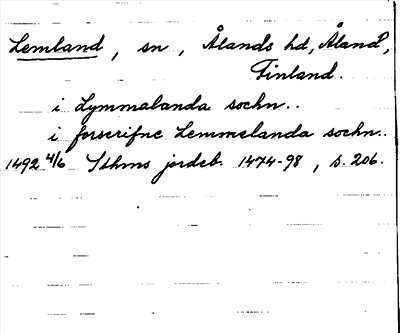 Lemland, sn, Ålands hd, Åland,
Finland.
i Lymmalanda sochn..
i forscrifne Lemmelanda sochn..
1492 4/6 Sthms jordeb. 1474-98, s. 206.